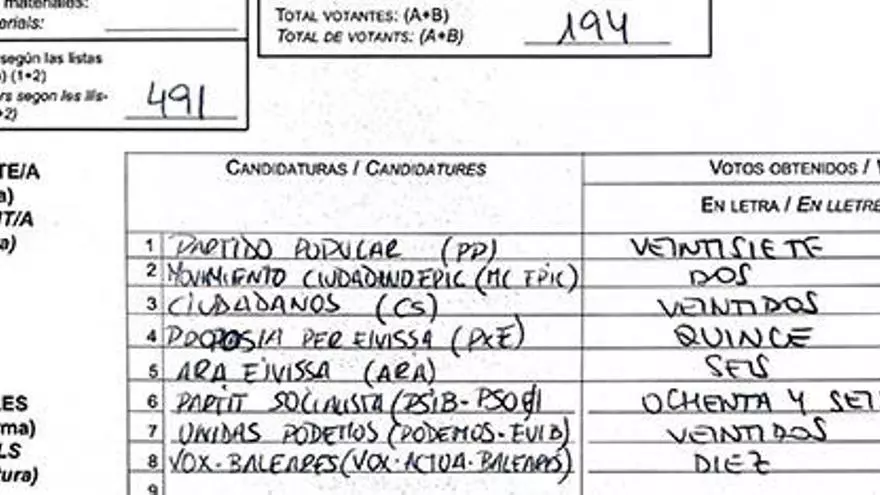 materiales:
erials:
TOTAL VOTANTES: (A+B)
TOTAL DE VOTANTS: (A+B)
194
según las listas
) (1+2)
rs segon les llis-
+2)
491
TE/A
a)
NT/A
a)
CANDIDATURAS / CANDIDATURES
VOTOS OBTENIDOS / V
EN LETRA / EN LLETRE
1 PARTIDO POPULAR (PP) VEINTISIETE
2 MOVIMIENTO CIUDADANO EPIC (MC EPIC) DOS
3 CIUDADANOS (CS) VEINTIDOS
4 PROPOSTA PER EIVISSA (PxE) QUINCE
5 ARA EIVISSA (ARA) SEIS
6 PARTIT SOCIALISTA (PSIB-PSOE) OCHENTA Y SEIS
7 UNIDAS PODEMOS (PODEMOS-EUIB) VEINTIDOS
8 VOX-BALEARES (VOX-ACTUA-BALEARES) DIEZ
9
LES
rma)
LS
tura)